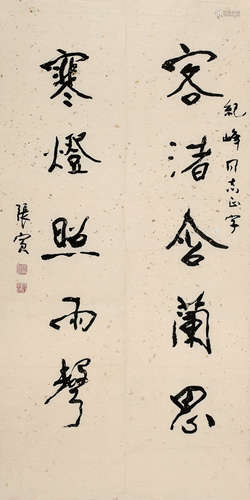 紀峰同志正字
客渚含蘭思
寒燈照雨聲
張寅